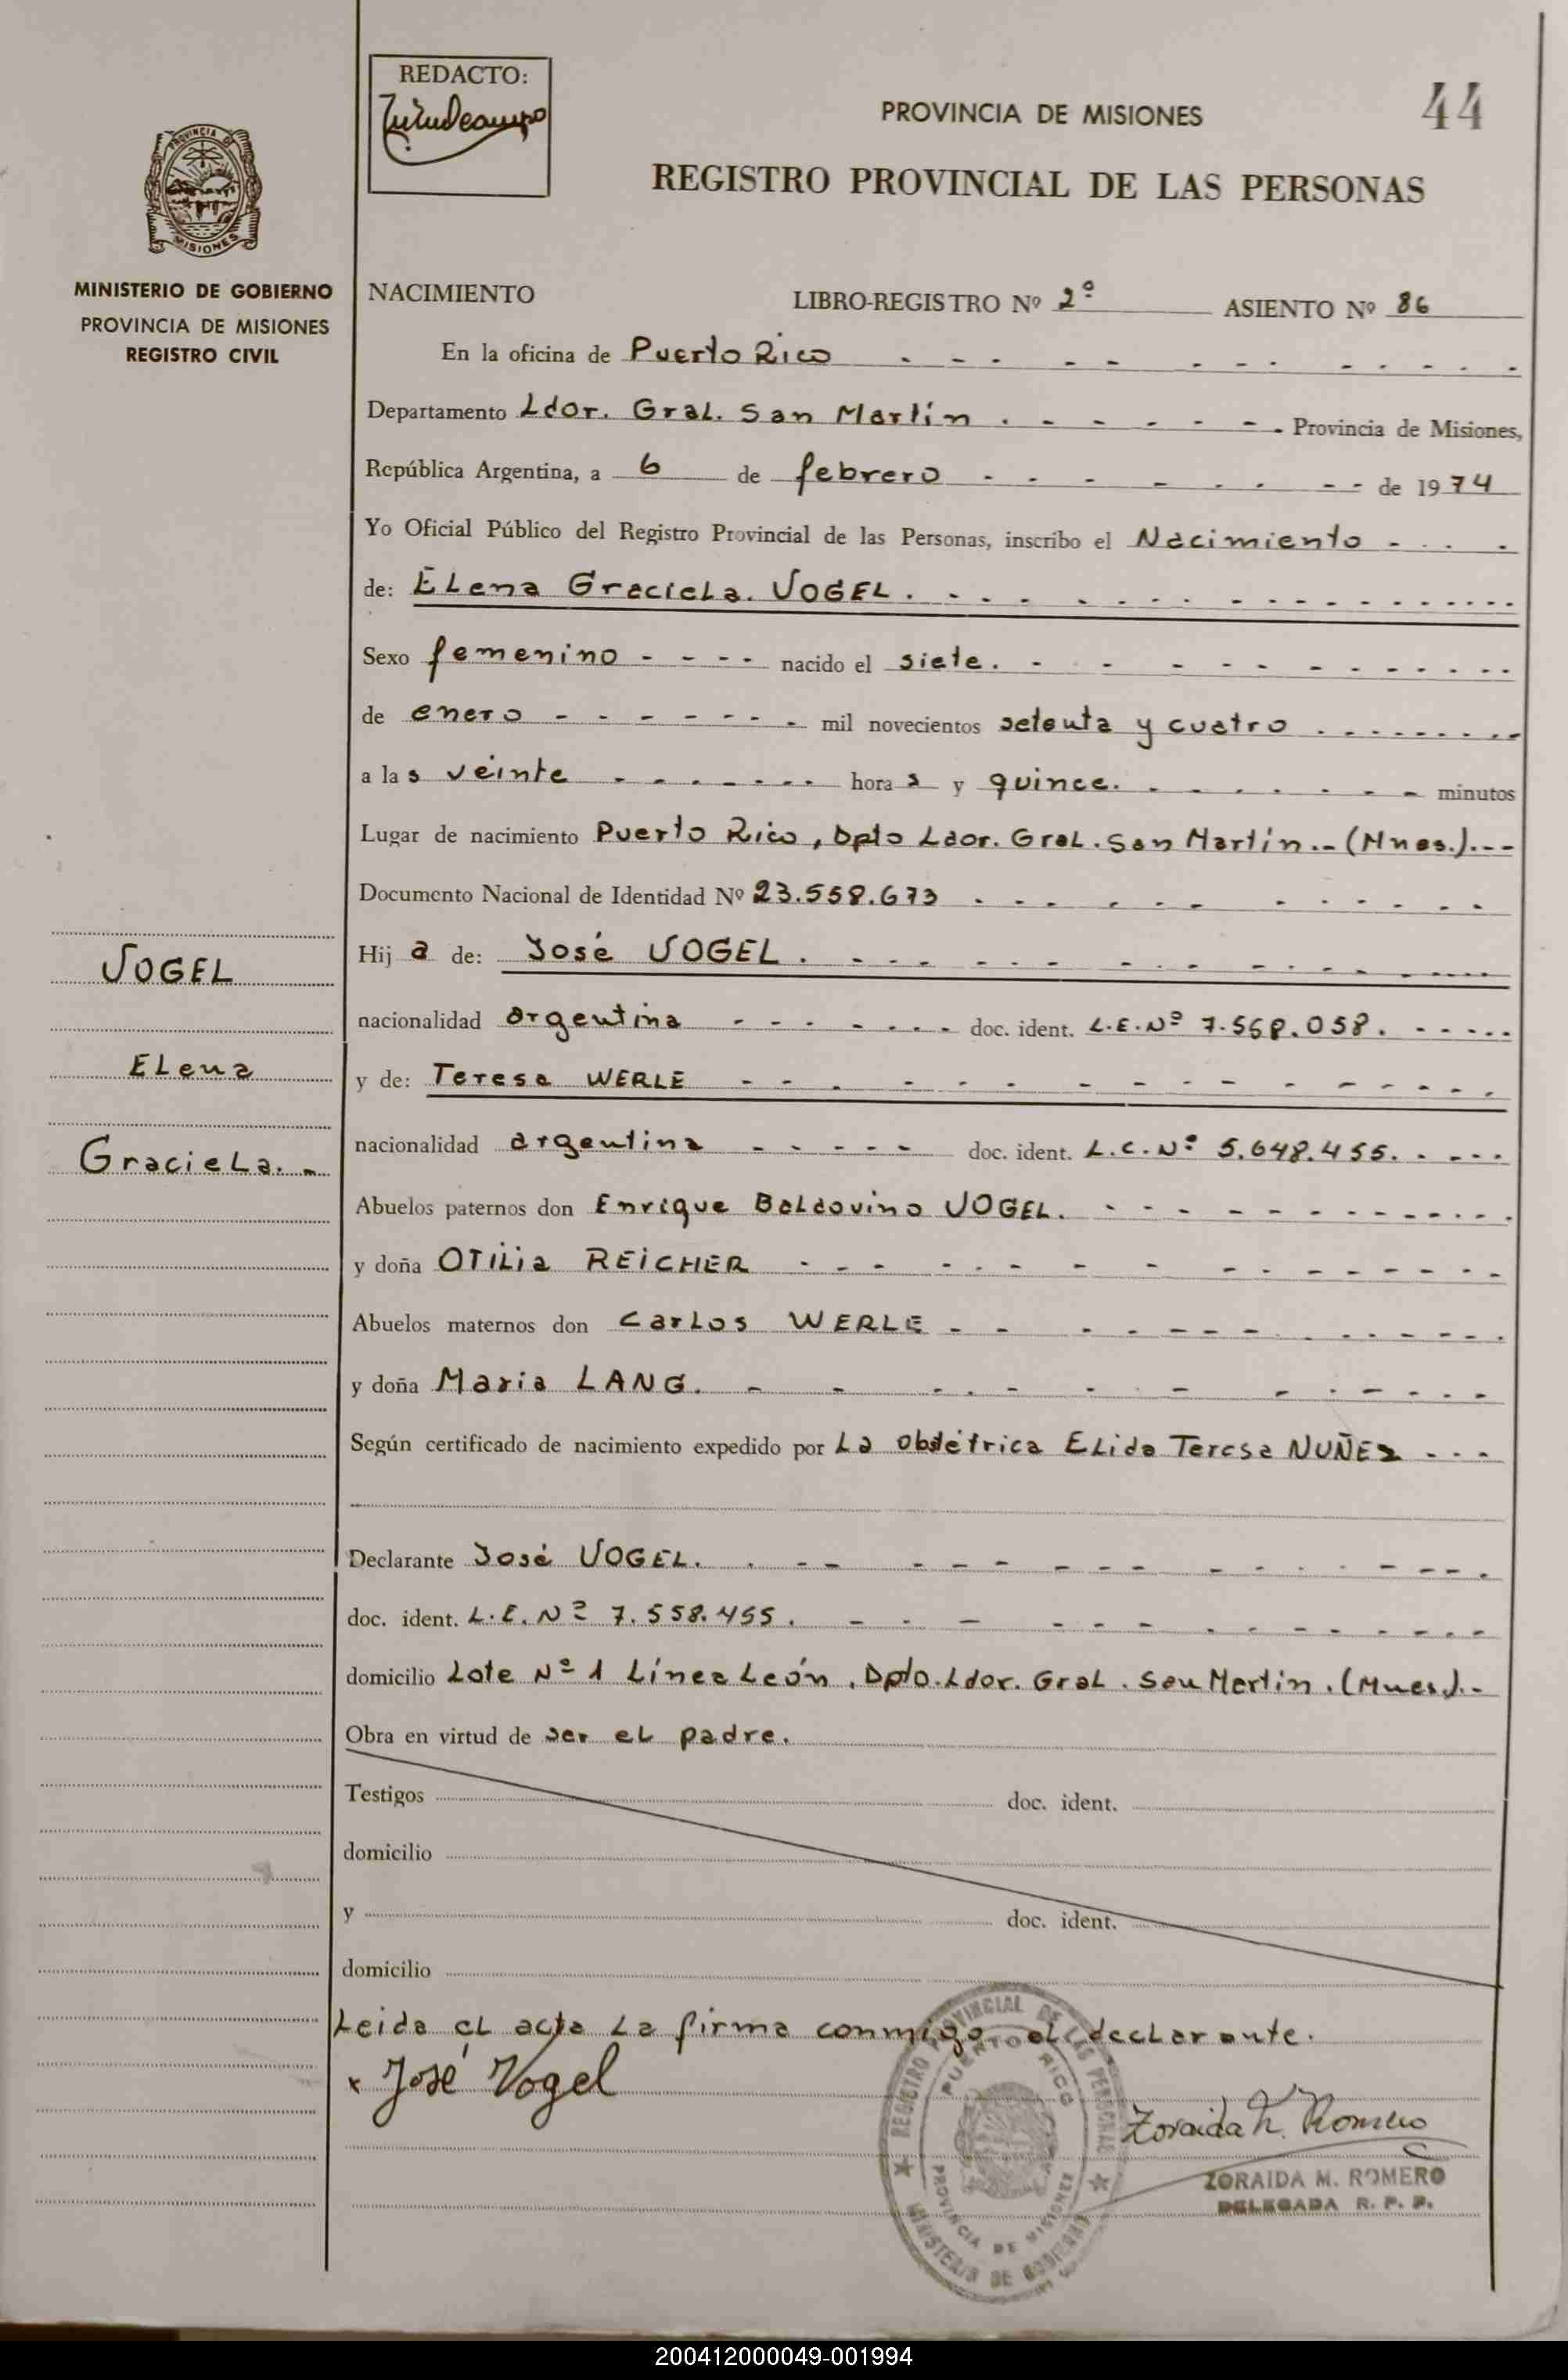 REDACTO:
PROVINCIA DE MISIONES
44
REGISTRO PROVINCIAL DE LAS PERSONAS
PROVINCIA DE
MISIONES
MINISTERIO DE GOBIERNO
PROVINCIA DE MISIONES
REGISTRO CIVIL
NACIMIENTO LIBRO-REGISTRO Nº 2º ASIENTO Nº 86
En la oficina de Puerto Rico
Departamento Ldor. Gral. San Martín. Provincia de Misiones,
República Argentina, a 6 de febrero de 1974
Yo Oficial Público del Registro Provincial de las Personas, inscribo el Nacimiento
de: Elena Graciela. VOGEL.
Sexo femenino nacido el siete.
de enero mil novecientos setenta y cuatro
a las veinte horas y quince. minutos
Lugar de nacimiento Puerto Rico, Dpto Ldor. Gral. San Martín.- (Mnes.).--
Documento Nacional de Identidad Nº 23.558.673
Hija de: José VOGEL.
nacionalidad argentina doc. ident. L.E.Nº 7.568.058.
y de: Teresa WERLE
nacionalidad argentina doc. ident. L.C.Nº 5.648.455.
Abuelos paternos don Enrique Baldovino VOGEL.
y doña OTILIA REICHER
Abuelos maternos don Carlos WERLE
y doña Maria LANG.
Según certificado de nacimiento expedido por La Obstétrica Elida Teresa NUÑEZ
Declarante José VOGEL.
doc. ident. L.E. Nº 7.558.455.
domicilio Lote Nº 1 Línea León, Dpto. Ldor. Gral. San Martin. (Mnes).-
Obra en virtud de ser el padre.
Testigos doc. ident.
domicilio
y doc. ident.
domicilio
Leida el acta la firma conmigo el declarante.
x José Vogel
Zoraida M. Romero
ZORAIDA M. ROMERO
DELEGADA R. P. P.
REGISTRO PROVINCIAL DE LAS PERSONAS
PUERTO RICO
PROVINCIA DE MISIONES
MINISTERIO DE GOBIERNO
VOGEL
Elena
Graciela.-
200412000049-001994